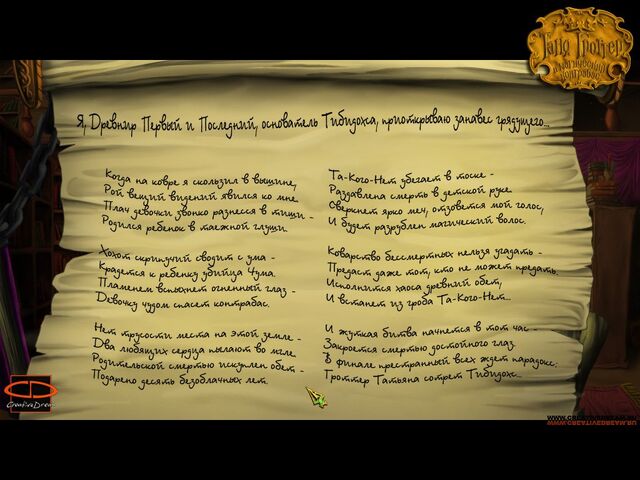 Таня Гроттер
магический
контрабас
Я, Древнир Первый и Последний, основатель Тибидохса, приоткрываю занавес грядущего...
Когда на ковре я скользил в вышине,
Рой вещий видений явился ко мне.
Плач девочки звонко разнесся в тиши -
Родился ребенок в таежной глуши.
Хохот скрипучий сводит с ума -
Крадется к ребенку убийца Чума.
Пламенем вспыхнет огненный глаз -
Девочку чудом спасет контрабас.
Нет трусости места на этой земле -
Два любящих сердца пылают во мгле.
Родительской смертью искуплен обет -
Подарено десять безоблачных лет.
Та-Кого-Нет убегает в тоске -
Раздавлена смерть в детской руке.
Сверкнет ярко меч, отзовется мой голос,
И будет разрублен магический волос.
Коварство бессмертных нельзя угадать -
Предаст даже тот, кто не может предать.
Исполнится хаоса древний обет,
И встанет из гроба Та-Кого-Нет...
И жуткая битва начнется в тот час -
Закроется смертью достойного глаз.
В финале престранный всех ждет парадокс:
Гроттер Татьяна сотрет Тибидохс...
CD
CreativeDream
WWW.CREATIVEDREAM.RU